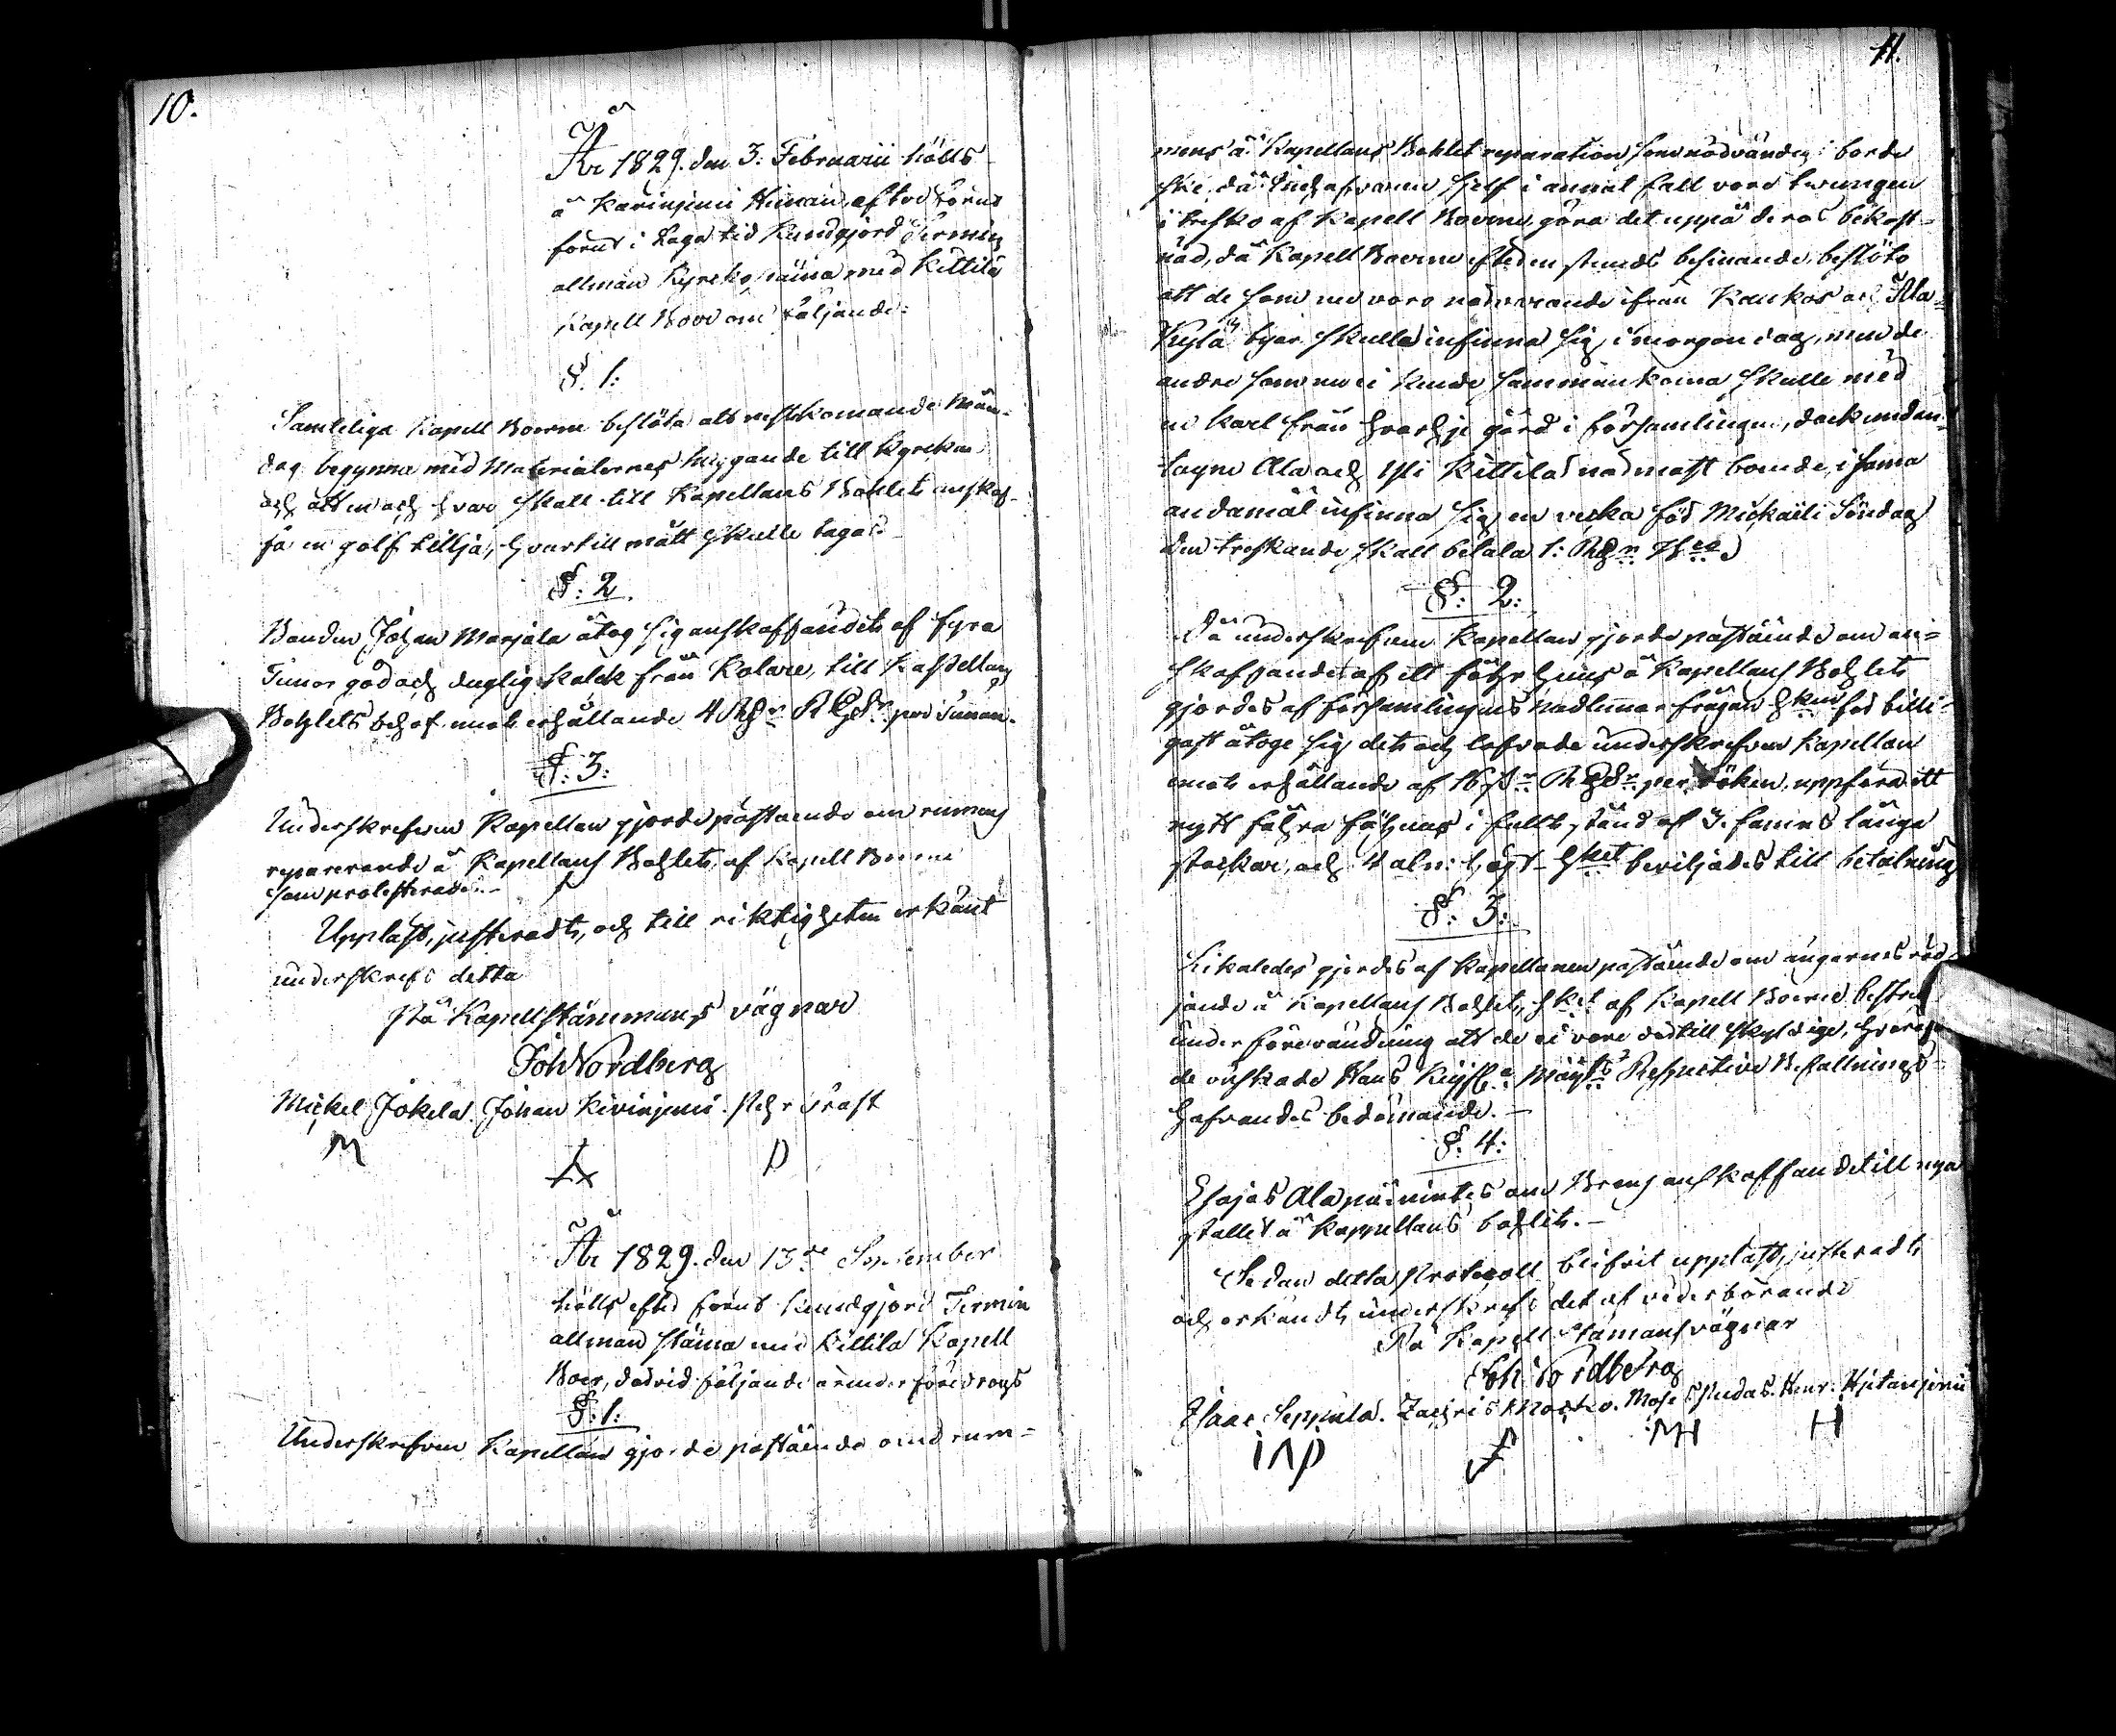 10.
År 1829. den 3. Februarii hölls
å Karinjemi Heman, efter förut
förut i Laga tid Kundgjord Termin
allmän Kyrkostäma med Kittilä
Kapell Boer om följande:
§. 1:
Samtelige Kapell Boerne beslöto att nestkomande Mån-
dag begynna med Materialernes huggande till Kyrkan
och att en och hvar skall till Kapellans Bohlets anskaf-
fa en golf tillja, hvartill mått skulle tagas.
§: 2.
Bonden Johan Marjala åtog sig anskaffandet af fyra
Tunor god och duglig kalck från Kolare, till Kapellans
Bohlets behof mot erhållande 4 RD. RGS. per Tunan.
§: 3:
Underskrefven Kapellan gjorde påstående om rumens
reparerande å Kapellans Bohlet, af Kapell Boerne
som protesterade.-
Upplåst, justeradt, och till riktigheten erkänt
underskrefs detta
På Kapellstämmans vägnar
Joh Nordberg
Mickel Jokela. Johan Kivinjemi. Pehr
M P
År 1829. den 13de September
hölls efter förut kundgjord Termin
allmän stäma med Kittilä Kapell
Boer, dervid följande ärender föredrogs
§: 1:
Underskrefven Kapellan gjorde påstående om rum-
11.
mens å Kapellans Bohlet reparation, som nödvändigt borde
ske, då innehafvaren sjelf i annat fall vore twungen
i tresko af Kapell Boerne, göra det uppå deras bekost-
nad, då Kapell Boerne efter en stunds besinande, beslöto
att de som nu voro närvarande ifrån Kaukos och Ala-
Kylä byar skulle infinna sig i morgon dag, men de
andre som nu ei kunde sammankoma skulle med
en karl från hvarje gård i församlingen, dock undan-
tagne Ala och Yli Kittilä närmast boende, i sama
andamål infinna sig en vecka för Mickaeli Söndag
den treskande skall betala 1: RD
§: 2:
Då underskrefven Kapellan gjorde påstående om an-
skaffandet af ett fähr huus å Kapellans Bohlet
gjordes af församlingens Medlemmar frågan hken för billi-
gast åtoge sig det och lofvade underskrefven Kapellan
mot erhållande af 16 per röken, uppföra ett
nytt fåhra fähuus i fullt stånd af 3. famns långa
stockar, och 4 aln: högt hket beviljades till betalning
§: 3:
Likaledes gjordes af Kapellanen påstående om ängarnes röd-
jande å Kapellans Bohlet, hket af Kapell Boerne bestred
under förevändning att de ei vore dertill skyldige, hvaröfver
de önskade Hans Kejsla Mayts Respective Befallnings-
hafvandes bedömande.-
§: 4:
Esajas Alapäiminte om anskaffande till nya
stallet å Kappellans bohlet.-
Sedan detta Protocoll blifvit uppläst, justeradt
och erkändt, underskrefs det af vederbörande
På Kapell Stämans vägnar
Joh Nordberg
Isaac Seppälä. Zachris Moses Pudas. Henr: Hjetanjemi
INP MH H